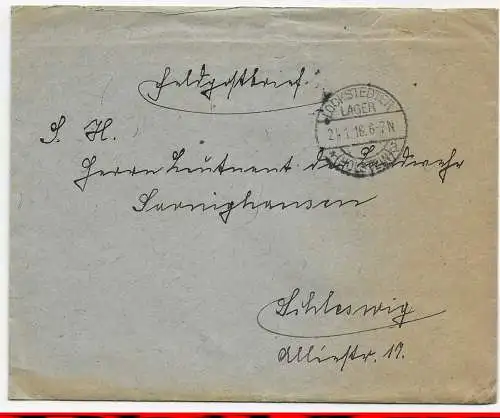 Feldpostbrief.
LOCKSTEDTER
LAGER
1.18.6-7N
* (HOLSTEIN) *
S. H.
Herrn Leutnant der Landwehr
Sarnighausen
Schleswig
Alliestr. 19.